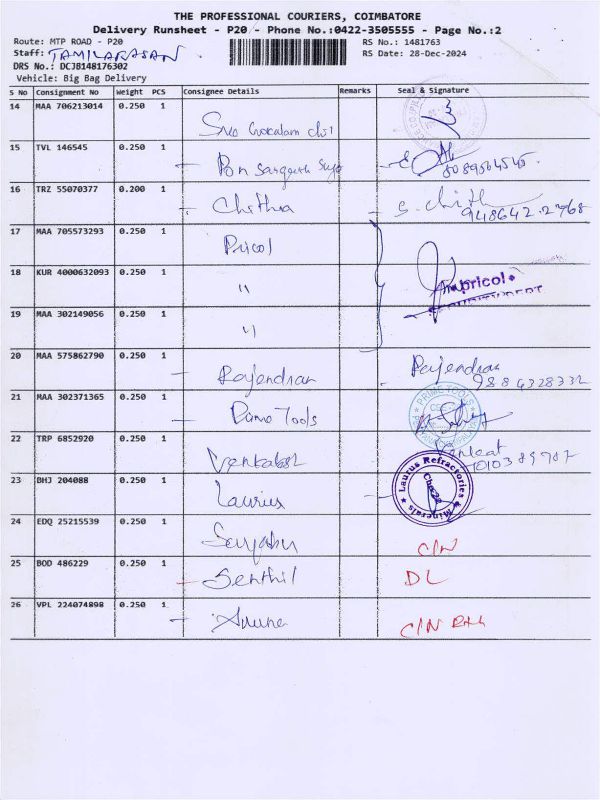 THE PROFESSIONAL COURIERS, COIMBATORE
Delivery Runsheet - P20 - Phone No.:0422-3505555 - Page No.:2
Route: MTP ROAD - P20 RS No.: 1481763
Staff: TAMILARASAN RS Date: 28-Dec-2024
DRS No.: DCJB148176302
Vehicle: Big Bag Delivery
S No Consignment No Weight PCS Consignee Details Remarks Seal & Signature
14 MAA 706213014 0.250 1
Sree Gokulam
15 TVL 146545 0.250 1
Pon Sangeeth
16 TRZ 55070377 0.200 1
Chithra S. Chith
17 MAA 705573293 0.250 1
Pricol
18 KUR 4000632093 0.250 1
" pricol
19 MAA 302149056 0.250 1
"
20 MAA 575862790 0.250 1
Rajendran Rajendran
21 MAA 302371365 0.250 1
Prime Tools PRIME TOOLS
22 TRP 6852920 0.250 1
Venkatesh Venkat
23 BHJ 204088 0.250 1
Laurus Laurus Refractories Minerals
24 EDQ 25215539 0.250 1
C/N
25 BOD 486229 0.250 1
Senthil DL
26 VPL 224074898 0.250 1
Aruna C/N